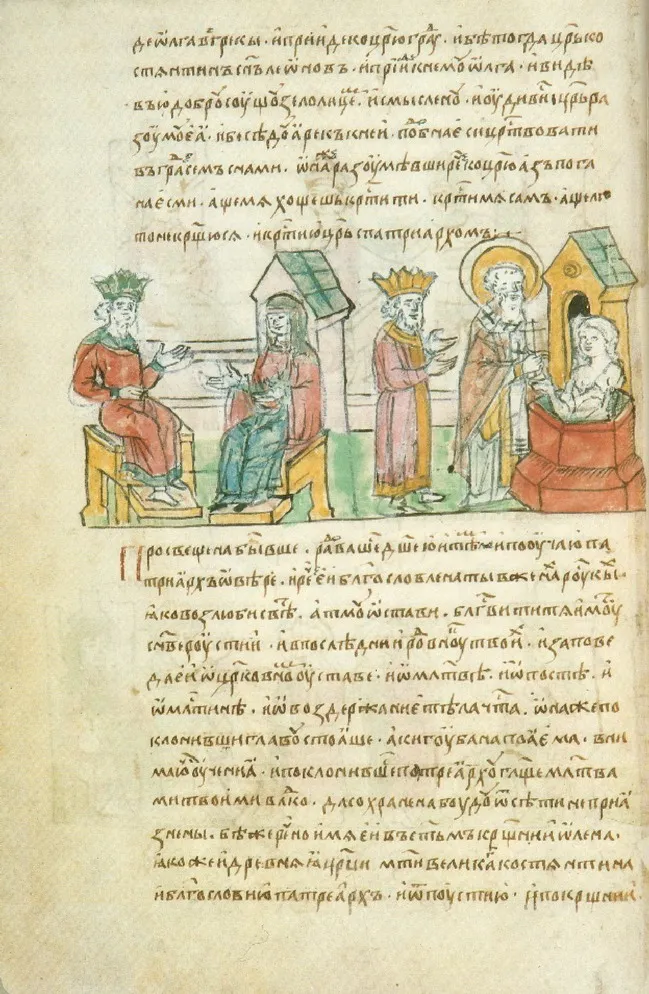 де ѡлга въ греки · и прїиде ко црю граⷣ · и бѣ тогда црь ко
стѧнтинъ сн҃ъ леѡновъ · и прїиⷣ к немоу ѡлга · и видѣ
въ ю доброу соущоу зело лицеⷨ · и смысленоу · и оудивиⷭ црь ра
зоумоу еѧ · и беседоуѧ рек къ неи · подобна еси црⷭтвовати
въ граⷣ сем с нами · ѡна разоумѣвши рече ко црю азъ пога
на есми · а ще мѧ хощешь крⷭтити · крⷭти мѧ самъ · аще ли
то не крщюсѧ · и крⷭти ю црь с патриархомъ
Просвещена бывше · радоваше дшею и тѣлоⷨ и пооучи ю па
триархъ ѡ вѣре · и реⷱ еи блгословлена ты в женаⷯ роускыⷯ ·
ѩко возлюби свѣⷮ · а тмоу ѡстави · блгвити тѧ имоуⷮ
сн҃ве роустиⷩ · и в послѣднии роⷣ вноукъ твоиⷯ · и запове
да еи ѡ црковноⷨ оуставе · и ѡ млтвѣ · и ѡ постѣ · и
ѡ млⷭтинѣ · и ѡ воздержание тѣла чⷭта · ѡна же по
клонивши главоу стоѧше · аки гоуба напаѧема · вни
маючи оученїа · и поклонившеⷭ потреарху глщє млтва
ми твоими влⷣко · да сохранена боудоу ѿ сѣти неприѩ
знены · бѣ же речено имѧ еи въ стѣмъ крщнии ѡлена ·
ѩко же и древнѧѧ црцⷶи мти великаⷢ костѧнтина
и блгослови ю патреархъ · и ѿпоусти ю · и по крщнии ·